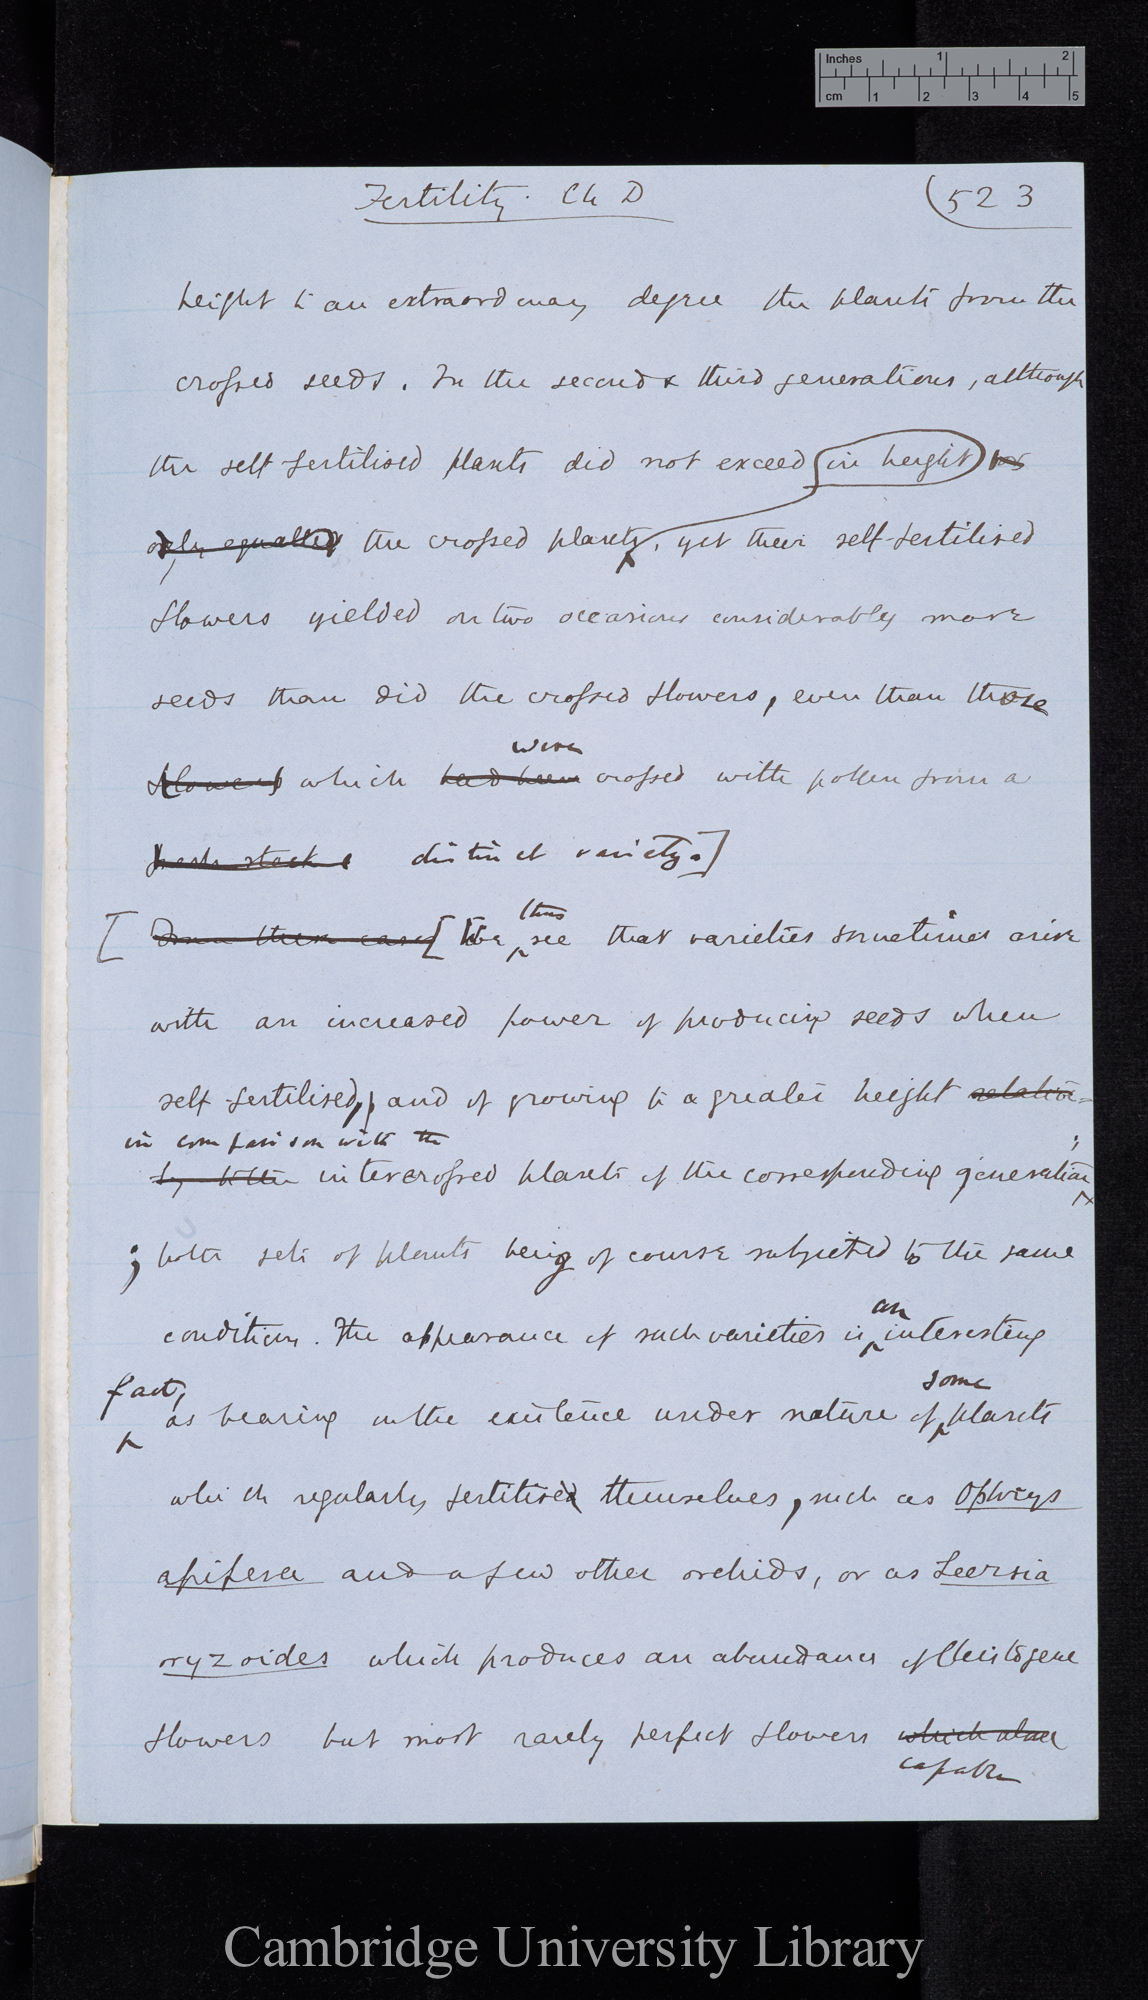 Inches 1 2
cm 1 2 3 4 5
Fertility. Ch D (523
height to an extraordinary degree the plants from the
crossed seeds. In the second & third generations, although
the self-fertilised plants did not exceed (in height)
only equalled the crossed plants, yet their self-fertilised
flowers yielded on two occasions considerably more
seeds than did the crossed flowers, even than those
were
flowers which had been crossed with pollen from a
fresh stock distinct variety.]
thus
[ From these cases [We see that varieties sometimes arise
with an increased power of producing seeds when
self-fertilised, and of growing to a greater height relative-
in comparison with the ;
ly to the intercrossed plants of the corresponding generation
; both sets of plants being of course subjected to the same
an
conditions. The appearance of such varieties is interesting
fact, some
as bearing on the existence under nature of plants
which regularly fertilised themselves, such as Ophrys
apifera and a few other orchids, or as Leersia
oryzoides which produces an abundance of cleistogene
flowers but most rarely perfect flowers which alone
capable
Cambridge University Library